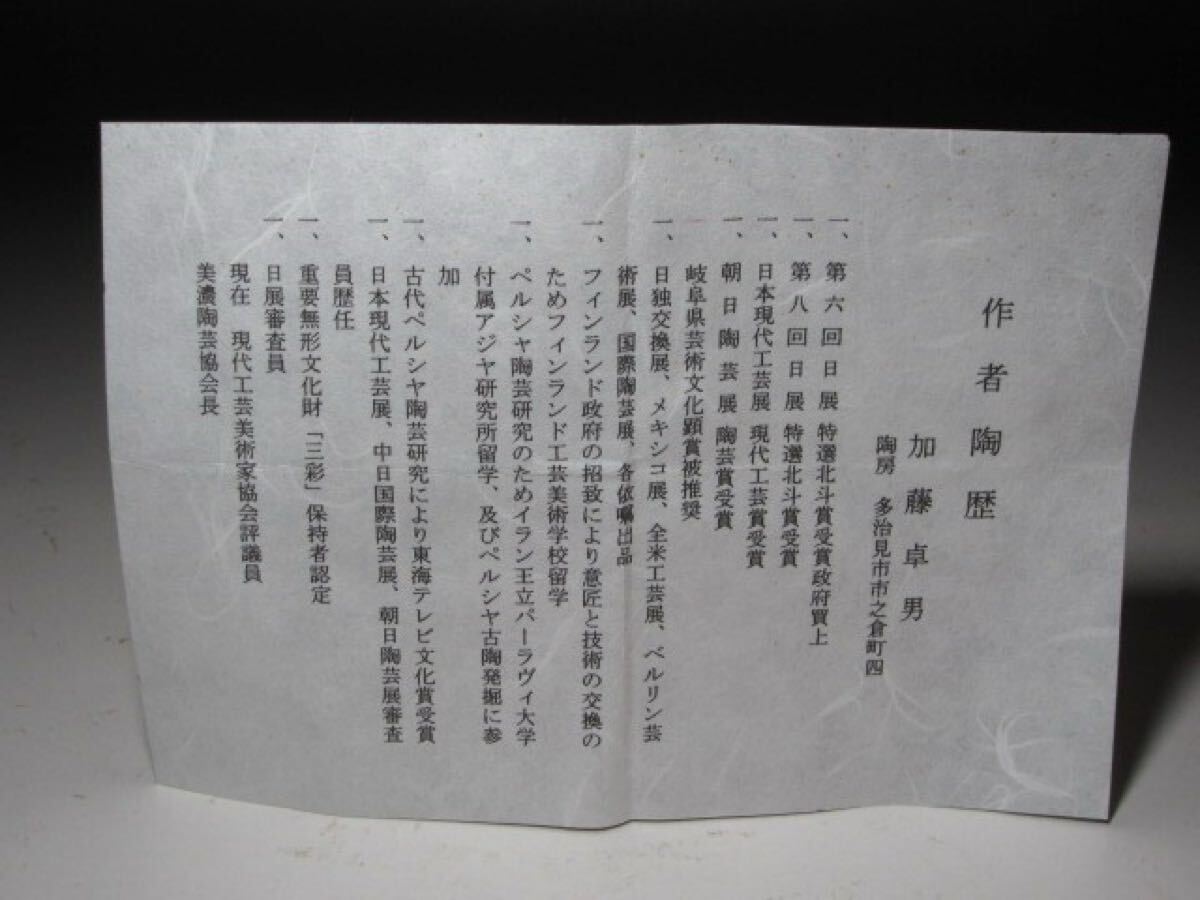 作者陶歴
加藤卓男
陶房　多治見市市之倉町四
一、第六回日展　特選北斗賞受賞政府買上
一、第八回日展　特選北斗賞受賞
一、日本現代工芸展　現代工芸賞受賞
一、朝日陶芸展　陶芸賞受賞
岐阜県芸術文化顕賞被推奨
一、日独交換展、メキシコ展、全米工芸展、ベルリン芸
術展、国際陶芸展、各依嘱出品
一、フィンランド政府の招致により意匠と技術の交換の
ためフィンランド工芸美術学校留学
一、ペルシヤ陶芸研究のためイラン王立パーラヴィ大学
付属アジヤ研究所留学、及びペルシヤ古陶発掘に参
加
一、古代ペルシヤ陶芸研究により東海テレビ文化賞受賞
一、日本現代工芸展、中日国際陶芸展、朝日陶芸展審査
員歴任
一、重要無形文化財「三彩」保持者認定
一、日展審査員
現在　現代工芸美術家協会評議員
美濃陶芸協会長